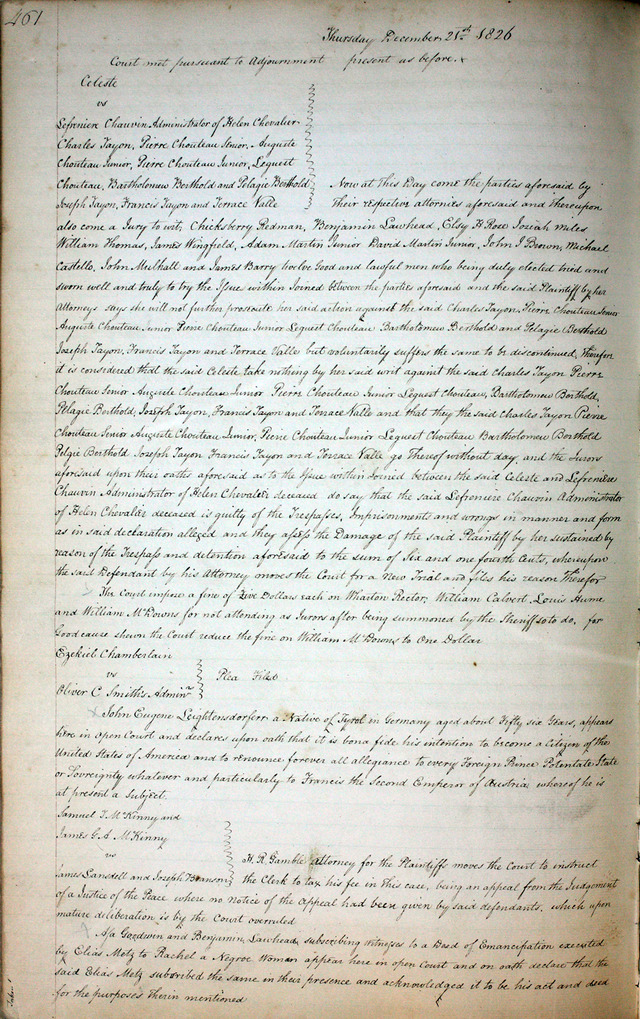 461
Thursday December 21st 1826
Court met pursuant to Adjournment present as before.
Celeste
vs
Lefreniere Chauvin Administrator of Helen Chevalier
Charles Tayon, Pierre Chouteau Senior, Auguste
Chouteau Junior, Pierre Chouteau Junior, Leguest
Chouteau, Bartholomew Berthold and Pelagie Berthold
Joseph Tayon, Francis Tayon and Terrace Valle
Now at this Day come the parties aforesaid by
their respective attornies aforesaid and thereupon
also come a Jury to wit, Chicksberry Redman, Benjamin Lawhead, Elsy H Rose Josiah Miles
William Thomas, James Wingfield, Adam Martin Junior David Martin Junior, John J Brown, Michael
Castello, John Mulhall and James Barry twelve Good and lawful men who being duly elected tried and
sworn well and truly to try the Issue within Joined between the parties aforesaid and the said Plaintiff by her
Attorneys says she will not further prosecute her said action against the said Charles Tayon, Pierre Chouteau Senior
Auguste Chouteau Junior Pierre Chouteau Junior Leguest Chouteau Bartholomew Berthold and Pelagie Berthold
Joseph Tayon, Francis Tayon and Terrace Valle but voluntarily suffers the same to be discontinued, Therefore
it is considered that the said Celeste take nothing by her said writ against the said Charles Tayon Pierre
Chouteau Senior Auguste Chouteau Junior Pierre Chouteau Junior Leguest Chouteau, Bartholomew Berthold,
Pelagie Berthold, Joseph Tayon, Francis Tayon and Terrace Valle and that they the said Charles Tayon Pierre
Chouteau Senior Auguste Chouteau Junior, Pierre Chouteau Junior Leguest Chouteau Bartholomew Berthold
Pelgie Berthold Joseph Tayon Francis Tayon and Terrace Valle go thereof without day. and the Jurors
aforesaid upon their oaths aforesaid as to the Issue within Joined between the said Celeste and Lefreniere
Chauvin Administrator of Helen Chevalier deceased do say that the said Lefreniere Chauvin Administrator
of Helen Chevalier deceased is guilty of the Trespasses, Imprisonments and wrongs in manner and form
as in said declaration alleged and they assess the Damage of the said Plaintiff by her sustained by
reason of the Trespass and detention aforesaid to the sum of Six and one fourth Cents, whereupon
the said Defendant by his Attorney moves the Court for a New Trial and files his reason therefor
The Court impose a fine of Five Dollars each on Wharton Rector, William Calvert, Louis Hume
and William McKowns for not attending as Jurors after being summoned by the Sheriff so to do, for
Good cause shewn the Court reduce the fine on William McKowns to One Dollar
Ezekiel Chamberlain
vs
Oliver C Smith's Adminr
Plea Filed
John Eugene Leightensdorferr a Native of Tyrol in Germany aged about Fifty six Years, appears
here in open Court and declares upon oath that it is bona fide his intention to become a Citizen of the
United States of America and to renounce forever all allegiance to every Foreign Prince Potentate State
or Sovereignty whatever and particularly to Francis the Second Emperor of Austria whereof he is
at present a Subject.
Samuel T McKinny and
James G. A. McKinny
vs
James Lansdell and Joseph Branson
H. R Gamble Attorney for the Plaintiffs moves the Court to instruct
the Clerk to tax his fee in this case, being an appeal from the Judgement
of a Justice of the Peace where no notice of the Appeal had been given by said defendants, which upon
mature deliberation is by the Court overruled
Asa Goodwin and Benjamin Lawhead, subscribing witnesses to a Deed of Emancipation executed
by Elias Metz to Rachel a Negroe Woman appear here in open Court and on oath declare that the
said Elias Metz subscribed the same in their presence and acknowledged it to be his act and deed
for the purposes therin mentioned